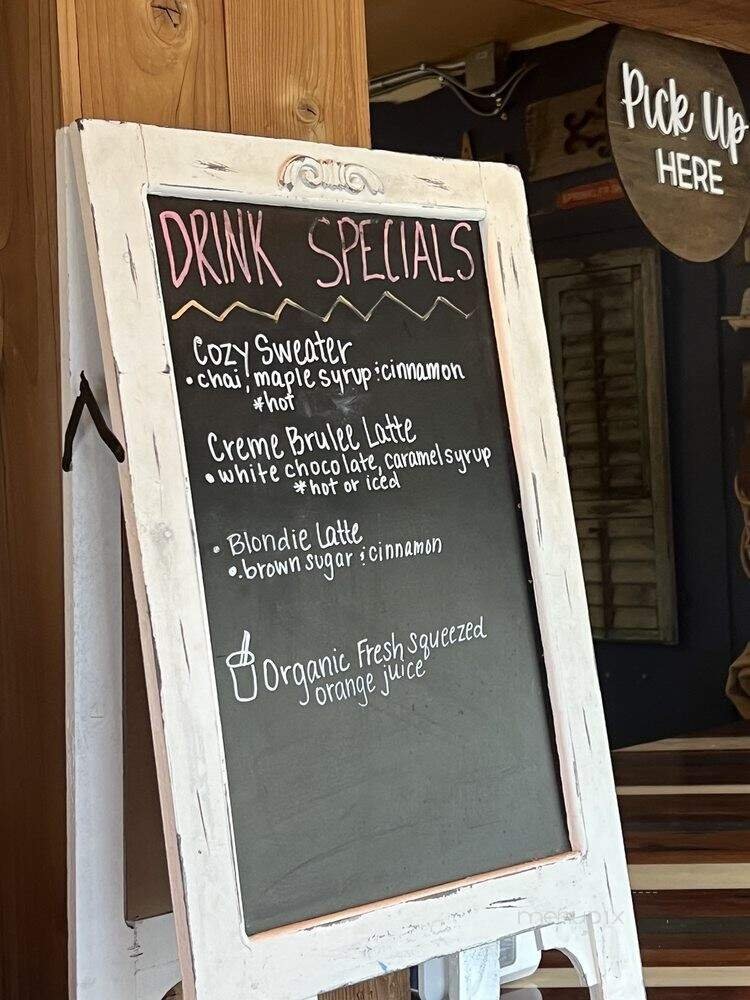 Pick Up
HERE
DRINK SPECIALS
Cozy Sweater
• chai, maple syrup & cinnamon
*hot
Creme Brulee Latte
• white chocolate, caramel syrup
*hot or iced
• Blondie Latte
• brown sugar & cinnamon
Organic Fresh squeezed
orange juice
menupix